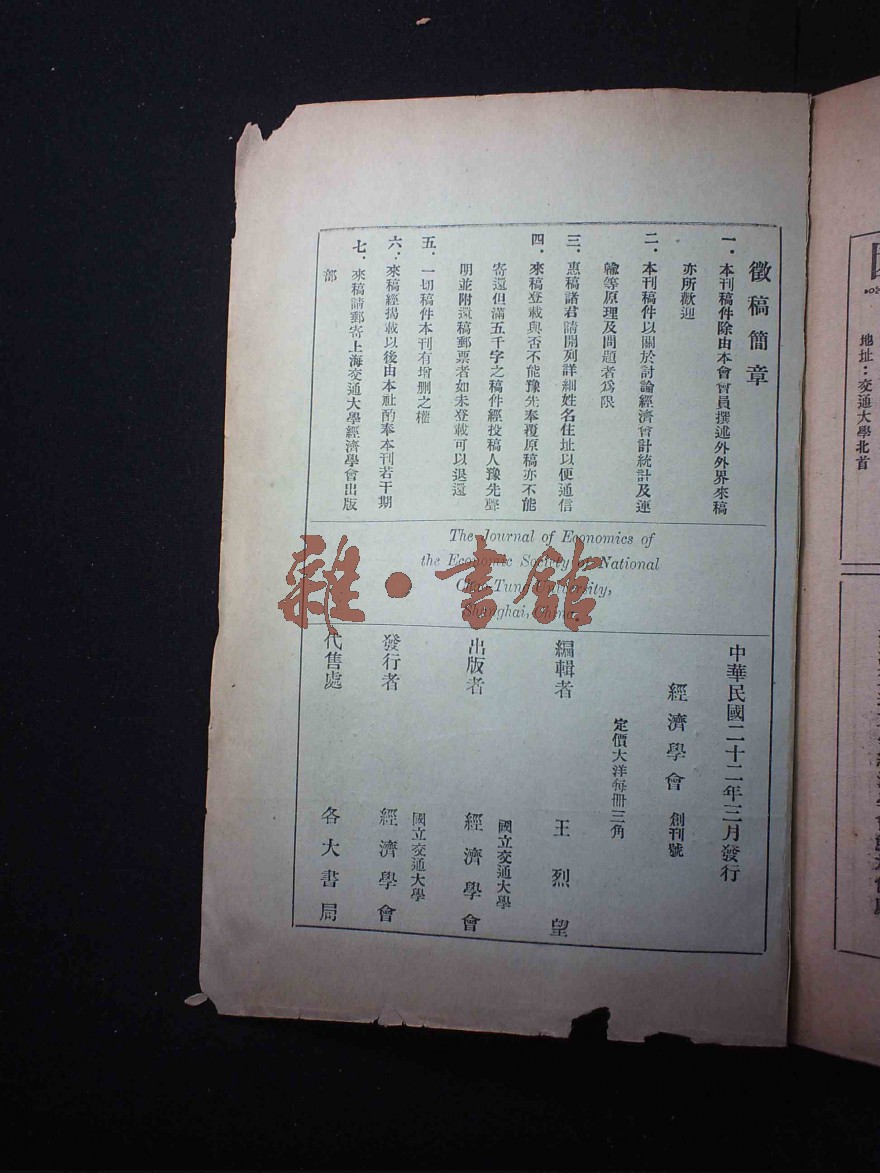 徵稿簡章
一．本刊稿件除由本會會員撰述外外界來稿
亦所歡迎
二．本刊稿件以關於討論經濟會計統計及運
輸等原理及問題者為限
三．惠稿諸君請開列詳細姓名住址以便通信
四．來稿登載與否不能豫先奉覆原稿亦不能
寄還但滿五千字之稿件經投稿人豫先聲
明並附還稿郵票者如未登載可以退還
五．一切稿件本刊有增删之權
六．來稿經揭載以後由本社酌奉本刊若干期
七．來稿請郵寄上海交通大學經濟學會出版
部
The Journal of Economics of
the Economic Society of National
Chao Tung University,
Shanghai, China.
中華民國二十二年三月發行
經濟學會 創刊號
定價大洋每册三角
編輯者 王烈望
出版者 國立交通大學
經濟學會
發行者 國立交通大學
經濟學會
代售處 各大書局
雜·書館
地址：交通大學北首